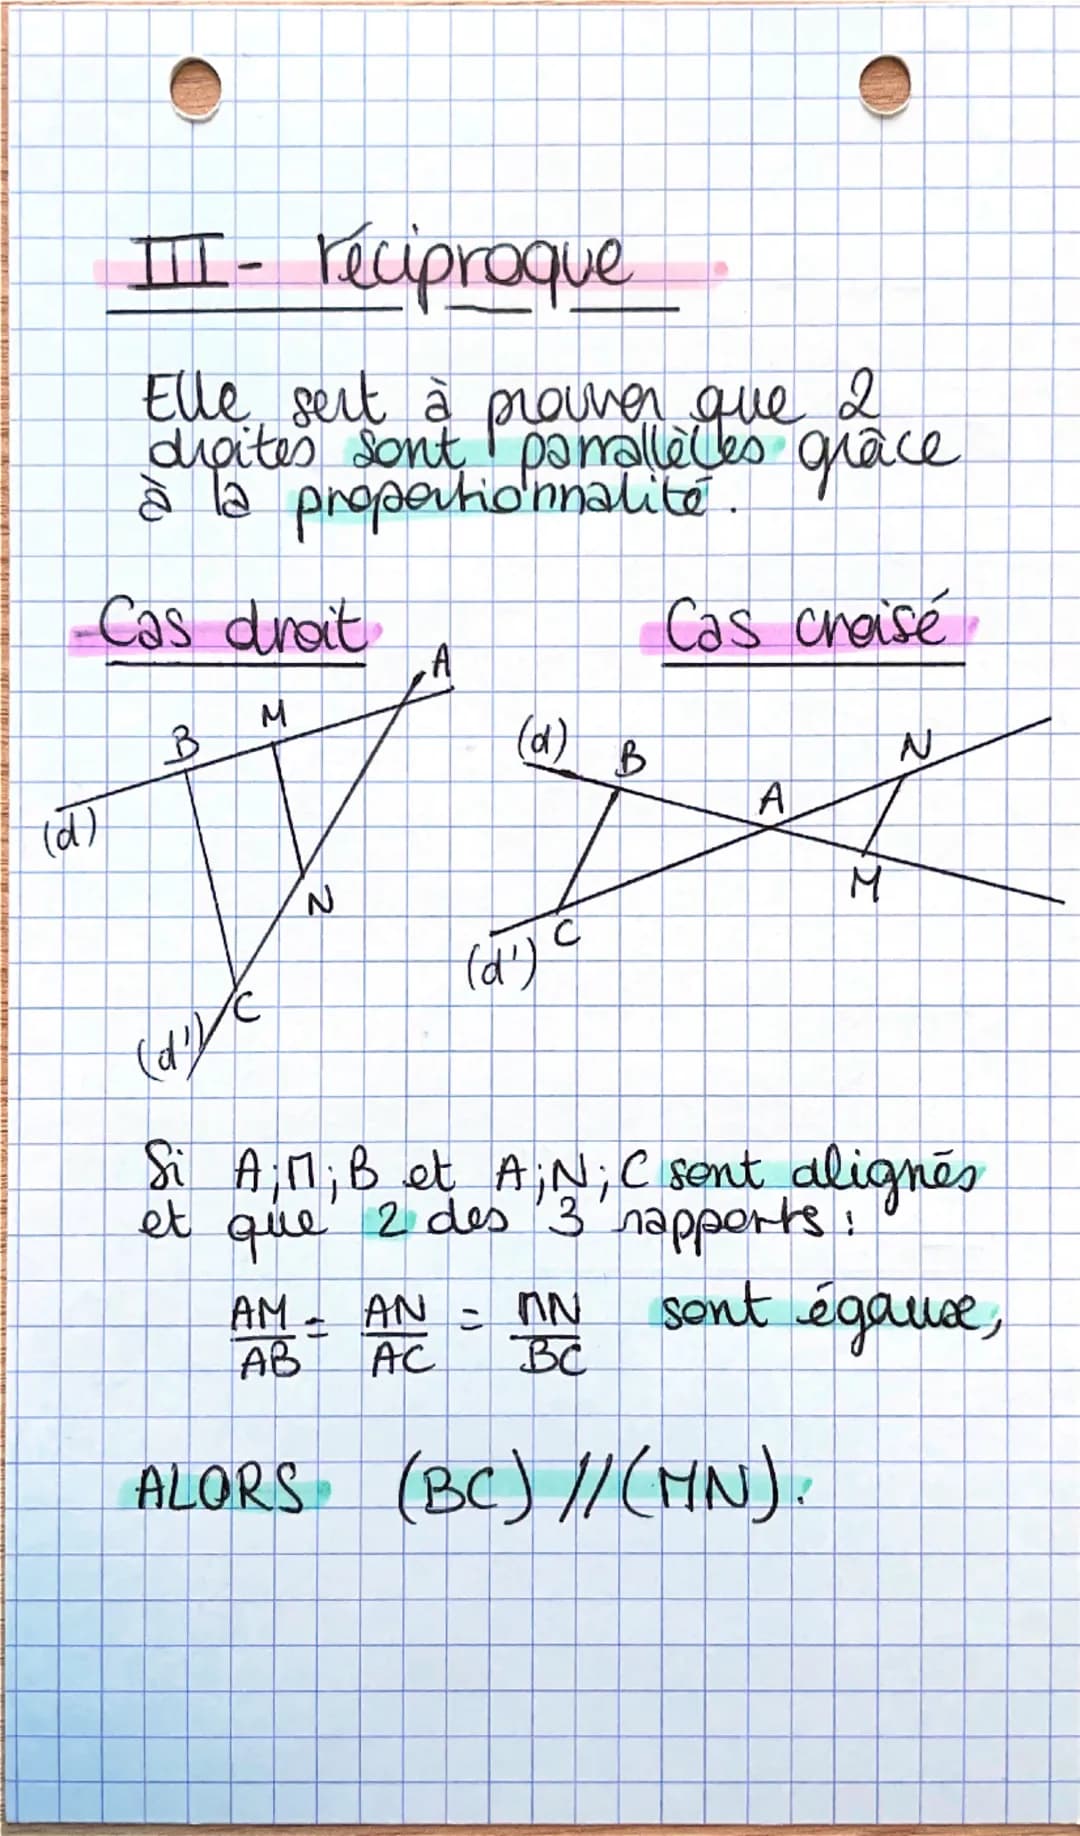 III- réciproque
Elle sert à prouver que 2
droites sont parrallèles grâce
à la proportionnalité.
Cas droit
Cas croisé
A
M
B
(d)
N
C
(d')
(d)
B
N
A
M
C
(d')
Si A;M;B et A;N;C sont alignés
et que 2 des 3 rapports :
AM/AB = AN/AC = MN/BC sont égaux,
ALORS (BC) // (MN).